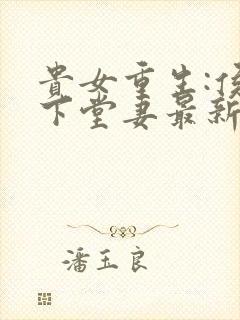 貴女重生:侯
下堂妻最新
潘玉良